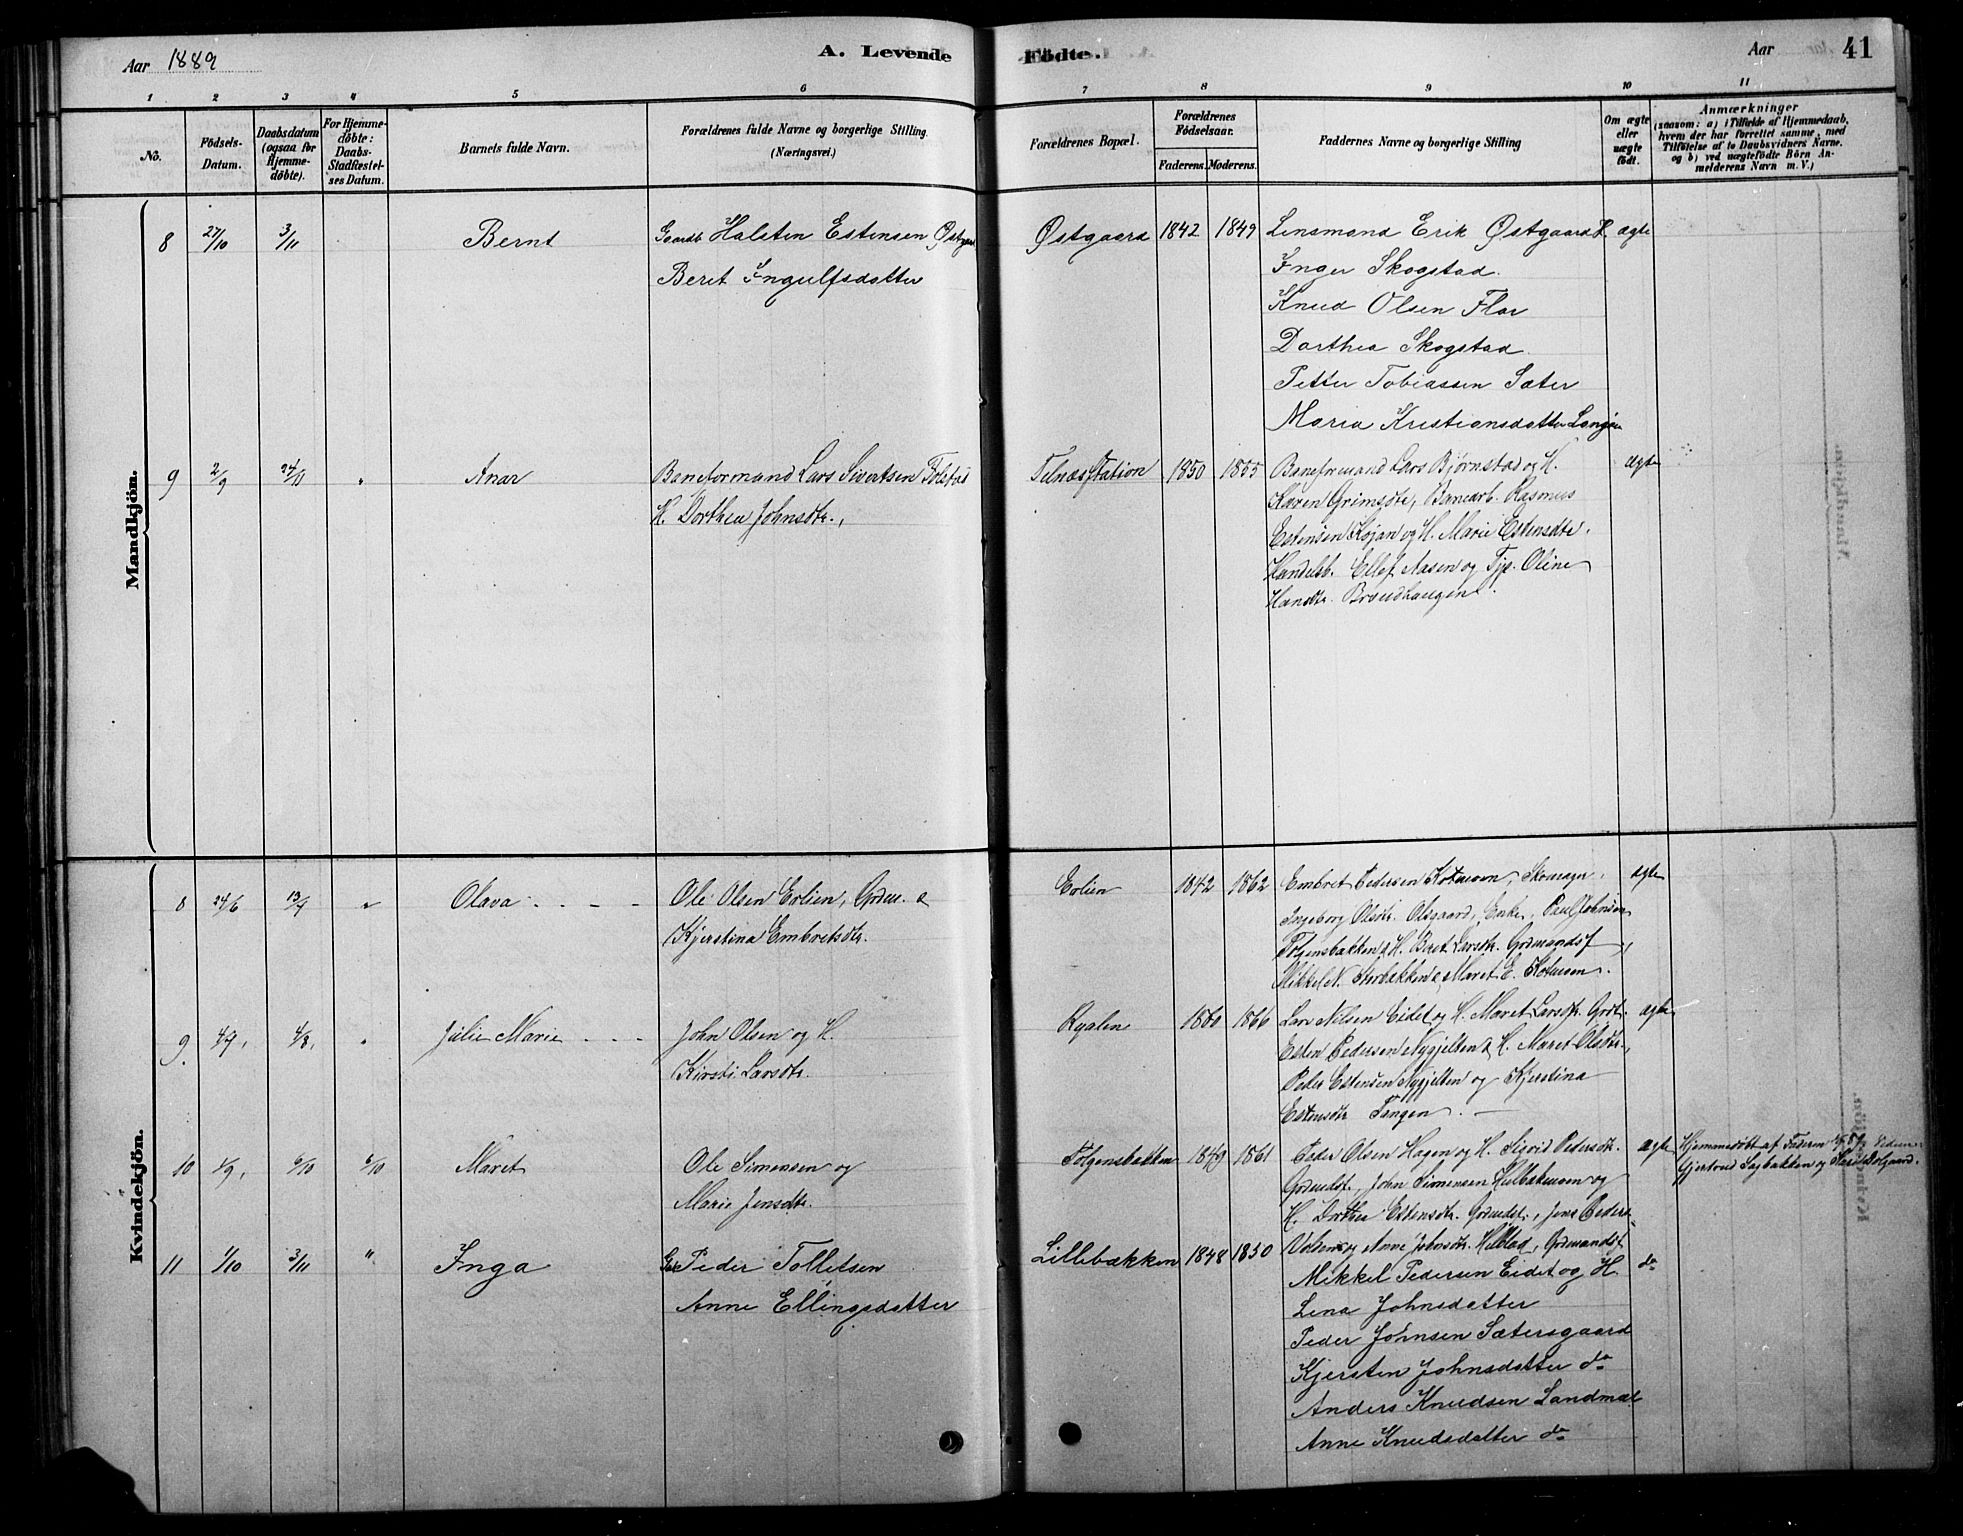 Aar 1889
A. Levende Fødte.
Aar
41
1 2 3 4 5 6 7 8 9 10 11
No.
Fødsels-Datum.
Daabsdatum (ogsaa for Hjemme-døbte).
For Hjemme-døbte: Daabs-Stadfæstel-ses Datum.
Barnets fulde Navn.
Forældrenes fulde Navne og borgerlige Stilling.
(Næringsvei.)
Forældrenes Bopæl.
Forældrenes Fødselsaar.
Faderens. Moderens.
Faddernes Navne og borgerlige Stilling
Om ægte eller uægte født.
Anmærkninger
(saasom: a) i Tilfælde af Hjemmedaab,
hvem der har forrettet samme, med
Tilføielse af to Daabsvidners Navne.
og b) ved uægtefødte Börn An-
melderens Navn m. V.)
Mandkjön.
8 27/10 3/11 Bernt
Gaardb. Halsten Estensen Østgaard
Beret Ingulfsdatter
Østgaard 1842 1849
Lensmand Erik Østgaard ægte
Inger Skogstad.
Knud Olsen Flor
Dorthea Skogstad.
Petter Tobiassen Sæter
Maria Kristiansdatter
9 2/9 24/11 " Anar
Baneformand Lars Sivertsen Tolstad
H. Dorthea Johnsdtr.,
Telnæs Station 1850 1855
Baneformand Lars Bjørnstad og H. ægte
Karen Grimsdtr, Banearb. Rasmus
Estensen Kojan og H. Marie Estensdtr.
Handelsb. Ellef Aasen og Pige Oline
Hansdtr. Brændhaugen.
Kvindekjön.
8 24/6 13/7 " Olava
Ole Olsen Evlien, Grdm. &
Kjerstina Embretsdtr.
Evlien 1842 1862
Embret Pedersen Kotmoen, Skomager. ægte
Ingeborg Olsdtr. Olsgaard, Enke, Paul Johnsen
Tølgensbakken & H. Beret Larsdtr. Grdmandsf
Mikkel N. Storbækken & Maret E. Kotmoen.
9. 4/7. 4/8. " Julie Marie
John Olsen og H.
Kirsti Larsdtr.
Ryalen 1860 1866
Lars Nilsen Eidet og H. Maret Larsdtr. ægte
Esten Pedersen Nygjelten & H. Maret Olsdtr.,
Peder Estensen Nygjelten og Kjerstina
Estensdtr Tangen.
10 1/9, 6/10 6/10 Maret
Ole Simensen og
Marie Jensdtr.
Tølgensbakken 1849 1861
Peder Olsen Hagen og H. Sigrid Pedersdtr. ægte
Grdmdsf., John Simensen og
H. Dorthea Estensdtr. Grdmdsf., Jens Peders.
Volden og Anne Johnsdtr. Grdmandsf
Hjemmedøbt af Faderen
Gjertrud Sagbakken og
11 1/10 3/11 " Inga
Peder Tollefsen
Anne Ellingsdatter
Lillebækken 1848 1850
Mikkel Pedersen Eidet og H. do
Lena Johnsdatter
Peder Johnsen Sætersgaard
Kjersten Johnsdatter do
Anders Knudsen Landmæl
Anne Knudsdatter do